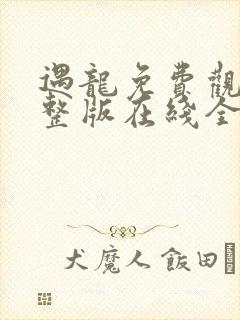 遇龍免費觀
整版在綫全
犬魔人飯田